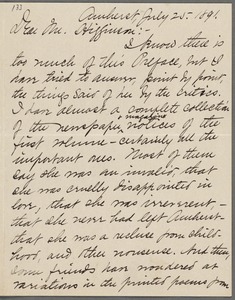 133
Amherst, July 25. 1891.
Dear Mr. Higginson:-
I know there is
too much of this Preface, but I
have tried to answer, point by point,
the things said of her by the critics.
I have almost a complete collection
of the newspaper & magazine notices of the
first volume - certainly all the
important ones. Most of them
say she was an invalid, that
she was cruelly disappointed in
love, that she was irreverent -
that she never had left Amherst -
that she was a recluse from child-
hood, and other nonsense. And then,
some friends have wondered at
variations in the printed poems from